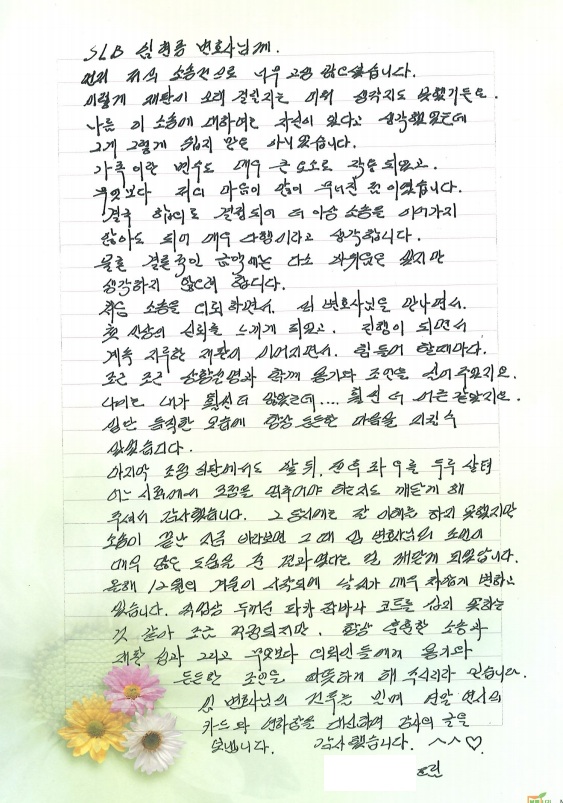 SLB 심현름 변호사님께.
먼저 저의 소송건으로 너무 고생 많으셨습니다.
이렇게 재판이 오래 걸릴지는 미처 생각지도 못했거든요.
나름 이 소송에 대하여는 자신이 있다고 생각했었는데
그게 그렇게 쉽지 만은 아니었습니다.
가족이란 변수도 매우 큰 요소로 작용 되었고.
무엇보다 저의 마음이 많이 무너진 것 이었습니다.
결국 합의로 결정되어 더 이상 소송을 이어가지
않아도 되어 매우 다행이라고 생각합니다.
물론 결론적인 금액에는 다소 아쉬움은 있지만
생각하지 않으려 합니다.
처음 소송을 의뢰하면서, 심 변호사님을 만나면서.
첫 인상의 신뢰를 느끼게 되었고. 진행이 되면서
계속 지루한 재판이 이어지면서, 힘들어 할때마다.
조근 조근 상황설명과 함께 용기와 조언을 넣어 주셨지요.
나이는 내가 훨씬 더 많았는데.... 훨씬 더 어른 같았지요.
심신 듬직한 모습에 항상 든든한 마음을 지킬수
있었습니다.
마지막 조정 재판에서도 앞 뒤, 전후 좌우를 두루 살펴
어느 시점에서 초점을 맞추어야 하는지도 깨닫게 해
주셔서 감사했습니다. 그 당시에는 잘 이해는 하지 못했지만
소송이 끝난 지금 바라보면 그 때 심 변호사님의 조언이
매우 많은 도움을 준 결과였다는 걸 깨닫게 되었답니다.
올해 12월의 겨울이 시작되어 날씨가 매우 차갑게 변하고
있습니다. 직업상 두꺼운 파카 잠바나 코트를 입지 못하는
것 같아 조금 걱정되지만, 항상 훈훈한 소송과
재판 심과 그리고 무엇보다 의뢰인들에게 용기와
든든한 조언을 따뜻하게 해 주시리라 믿습니다.
심 변호사님의 건투를 빌며 연말 연시의
카드와 연하장을 대신하여 감사의 글을
보냅니다. 감사했습니다. ^^♡.